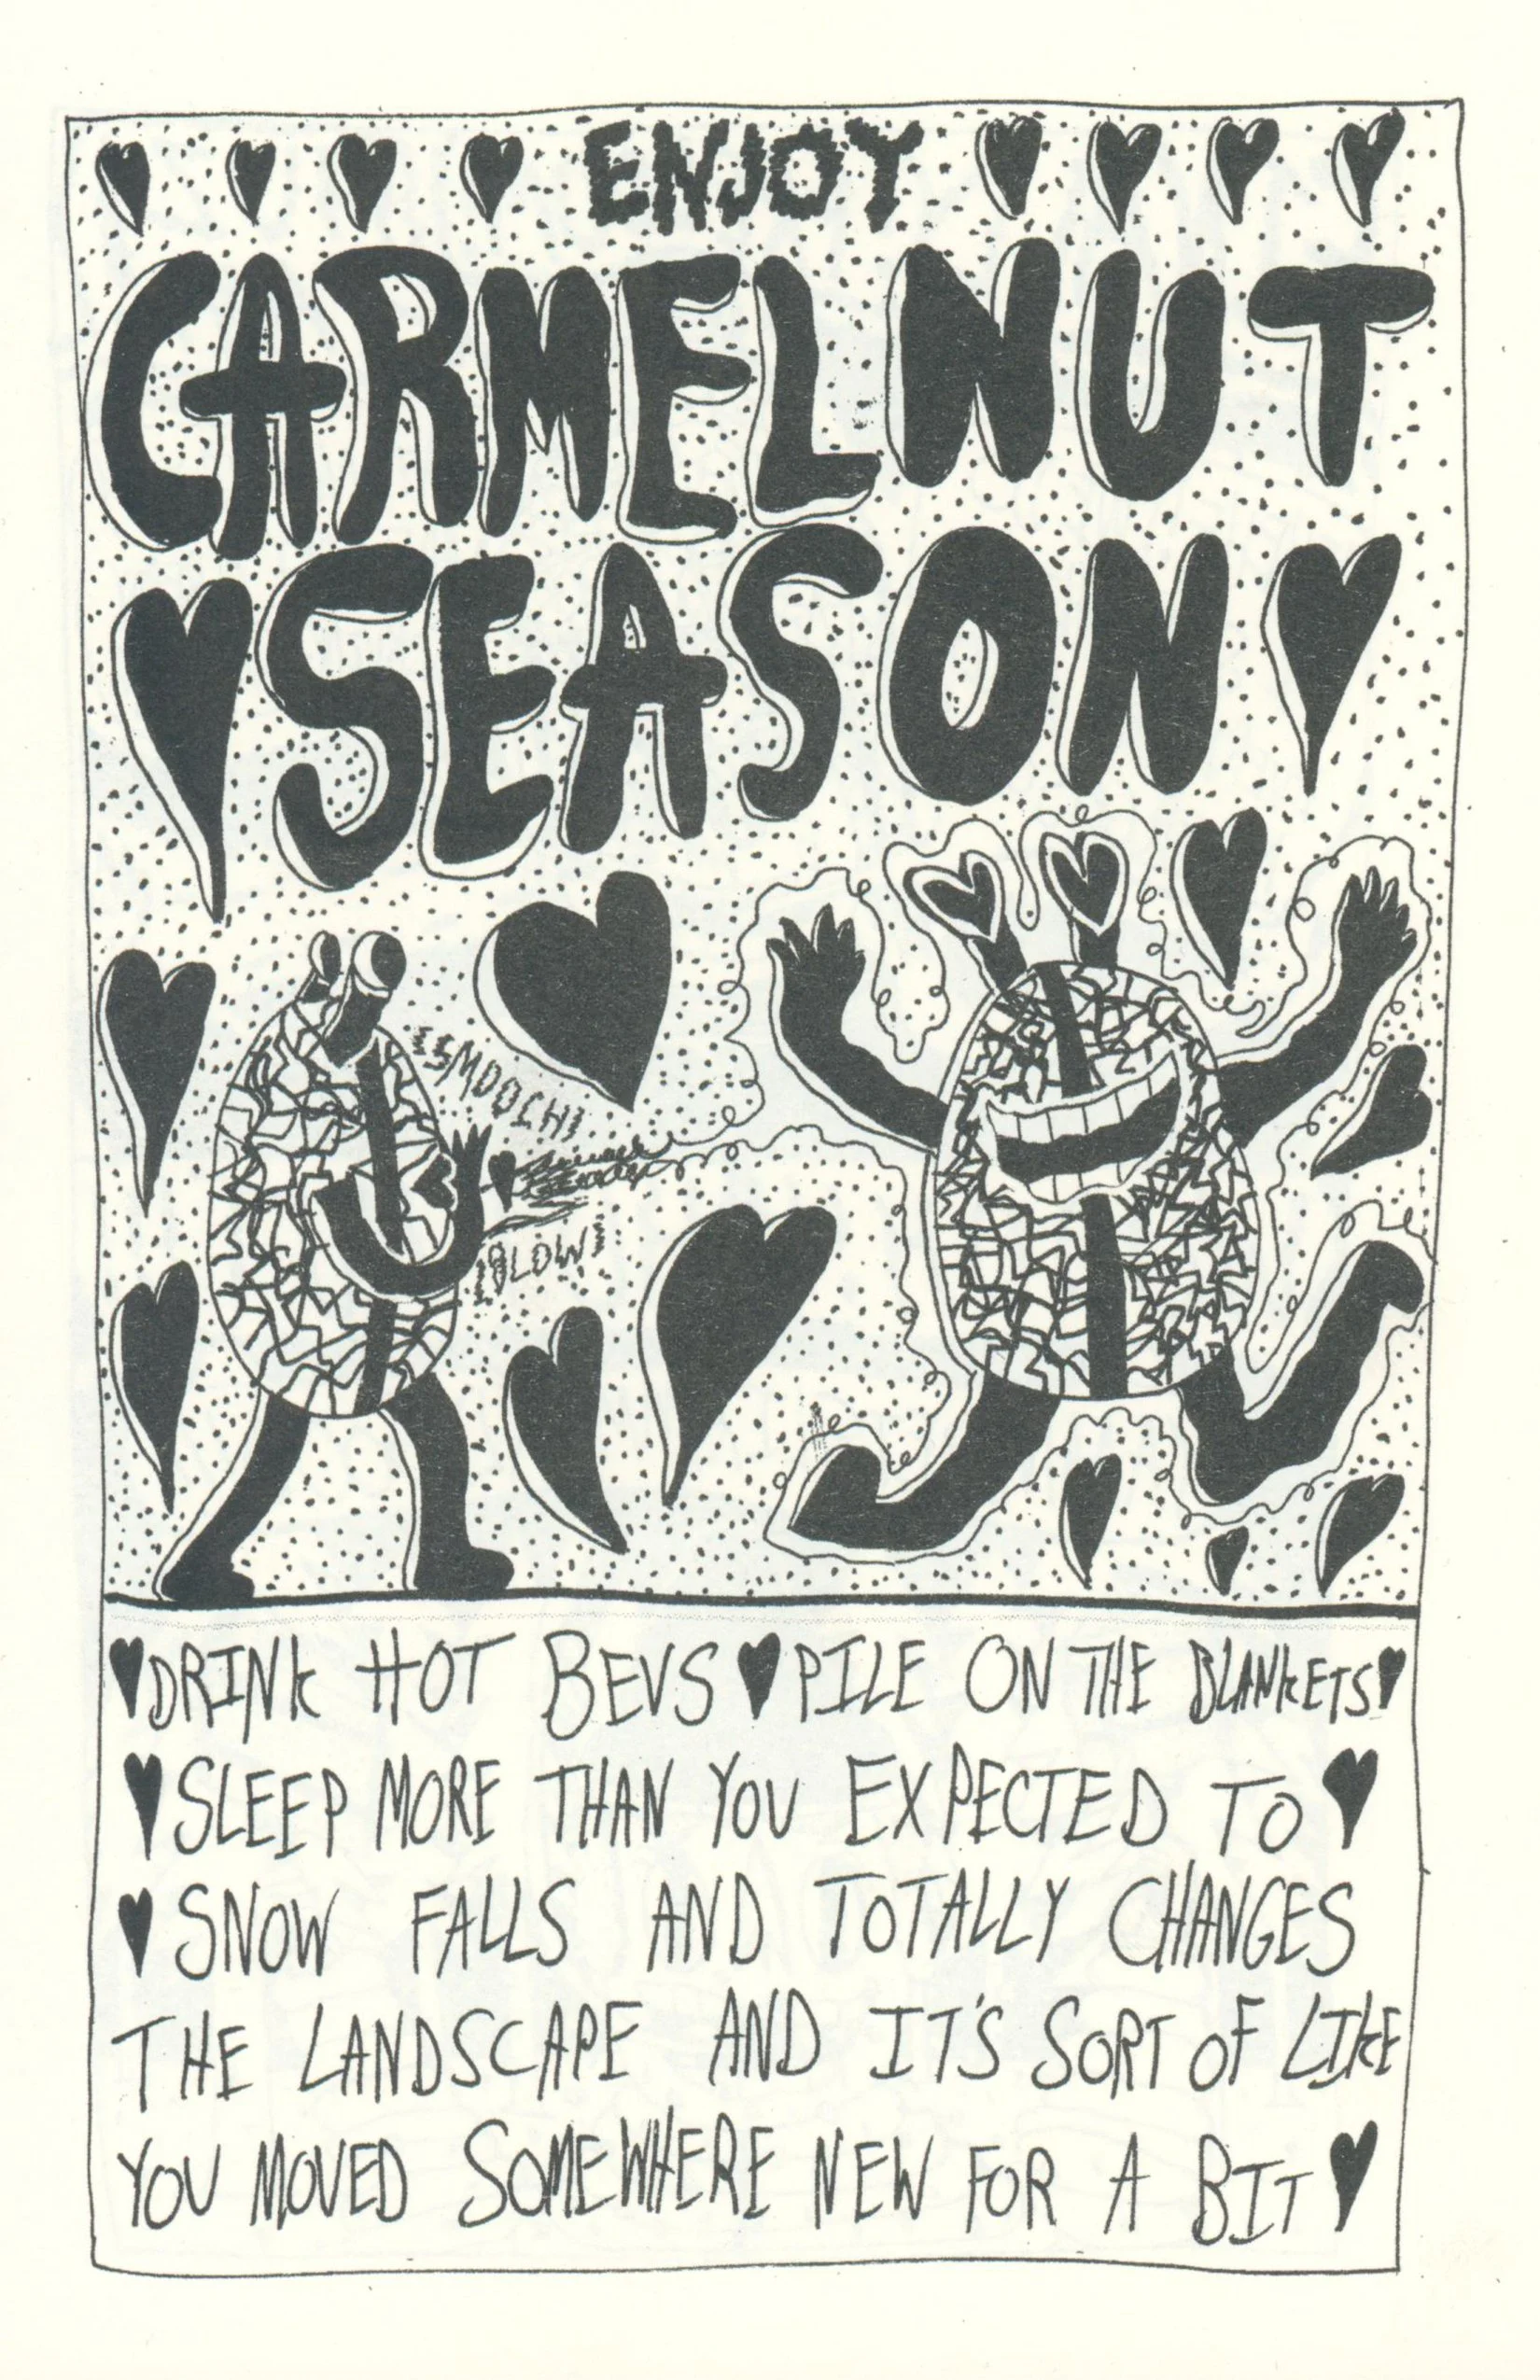 ENJOY
CARMELNUT
SEASON
!SMOOCH!
!BLOW!
DRINK HOT BEVS PILE ON THE BLANKETS
SLEEP MORE THAN YOU EXPECTED TO
SNOW FALLS AND TOTALLY CHANGES
THE LANDSCAPE AND IT'S SORT OF LIKE
YOU MOVED SOMEWHERE NEW FOR A BIT